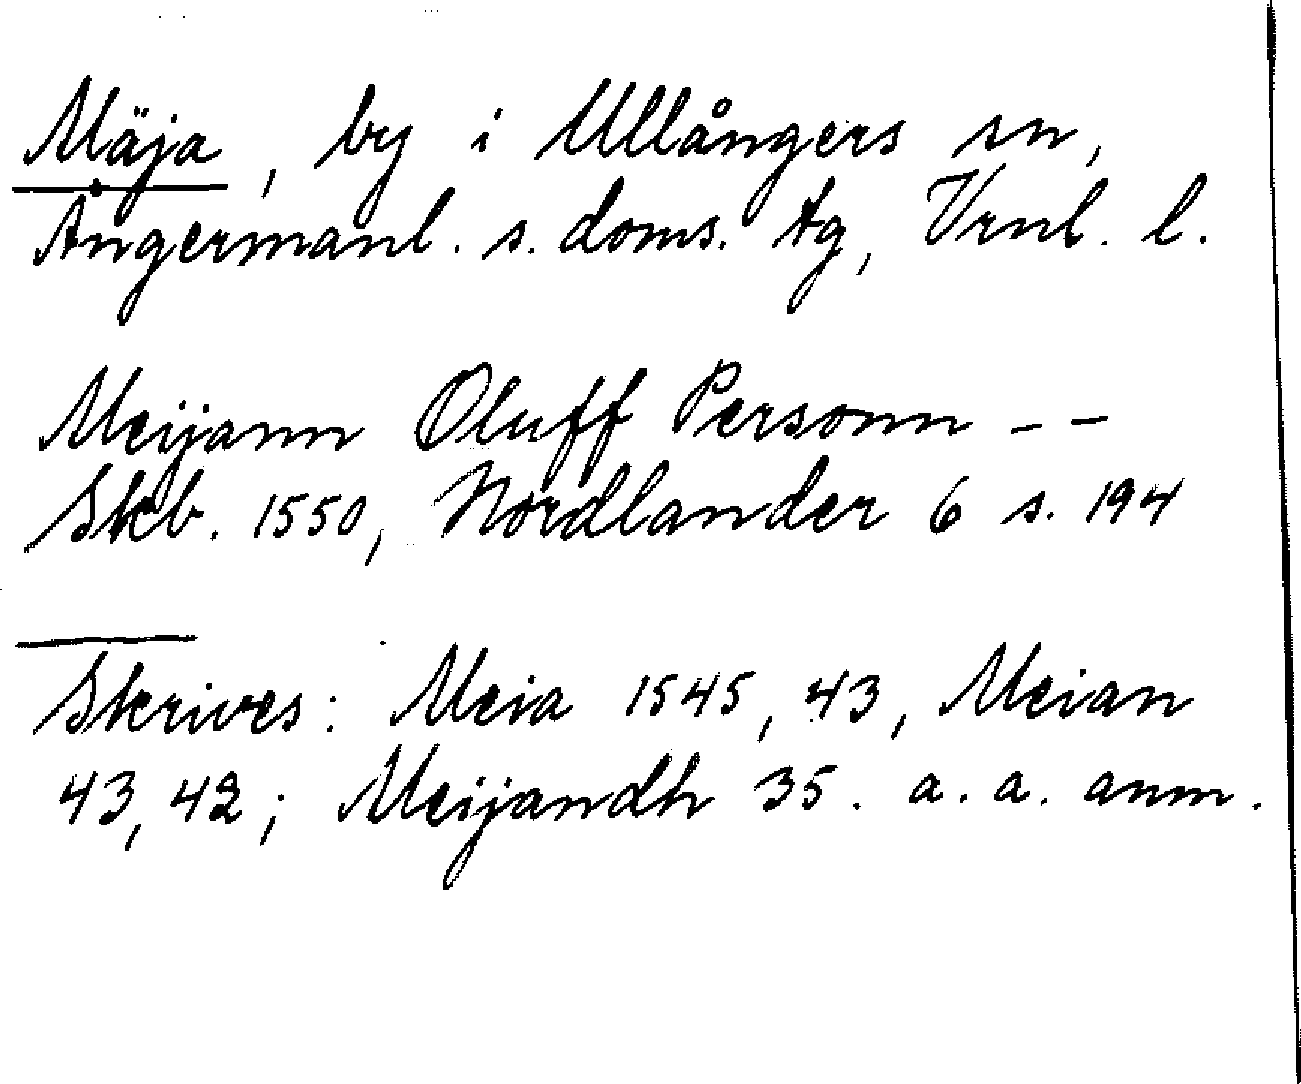 Mäja, by i Ullångers sn,
Ångermanl. s. doms. tg, Vrnl. l.
Meijann Oluff Personn - -
Skb. 1550, Nordlander 6 s. 194
Skrives: Meia 1545, 43, Meian
43, 42; Meijandh 35. a. a. anm.